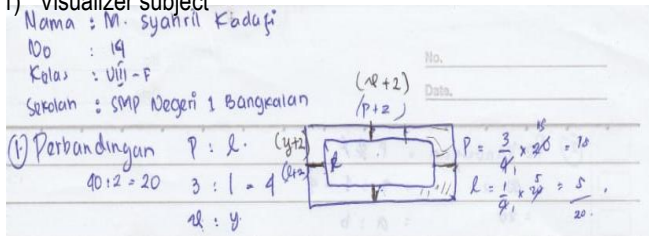 f) Visualizer subject
Nama : M. Syahril Kadafi
No : 19
Kelas : VIII - F
Sekolah : SMP Negeri 1 Bangkalan
No.
Date.
(x+2)
(p+2)
(y+2)
(l+2)
l
① Perbandingan P : l.
40 : 2 = 20 3 : 1 = 4
x : y
P = 3/4 x 20 = 
l = 1/4 x 20 = 5
20.